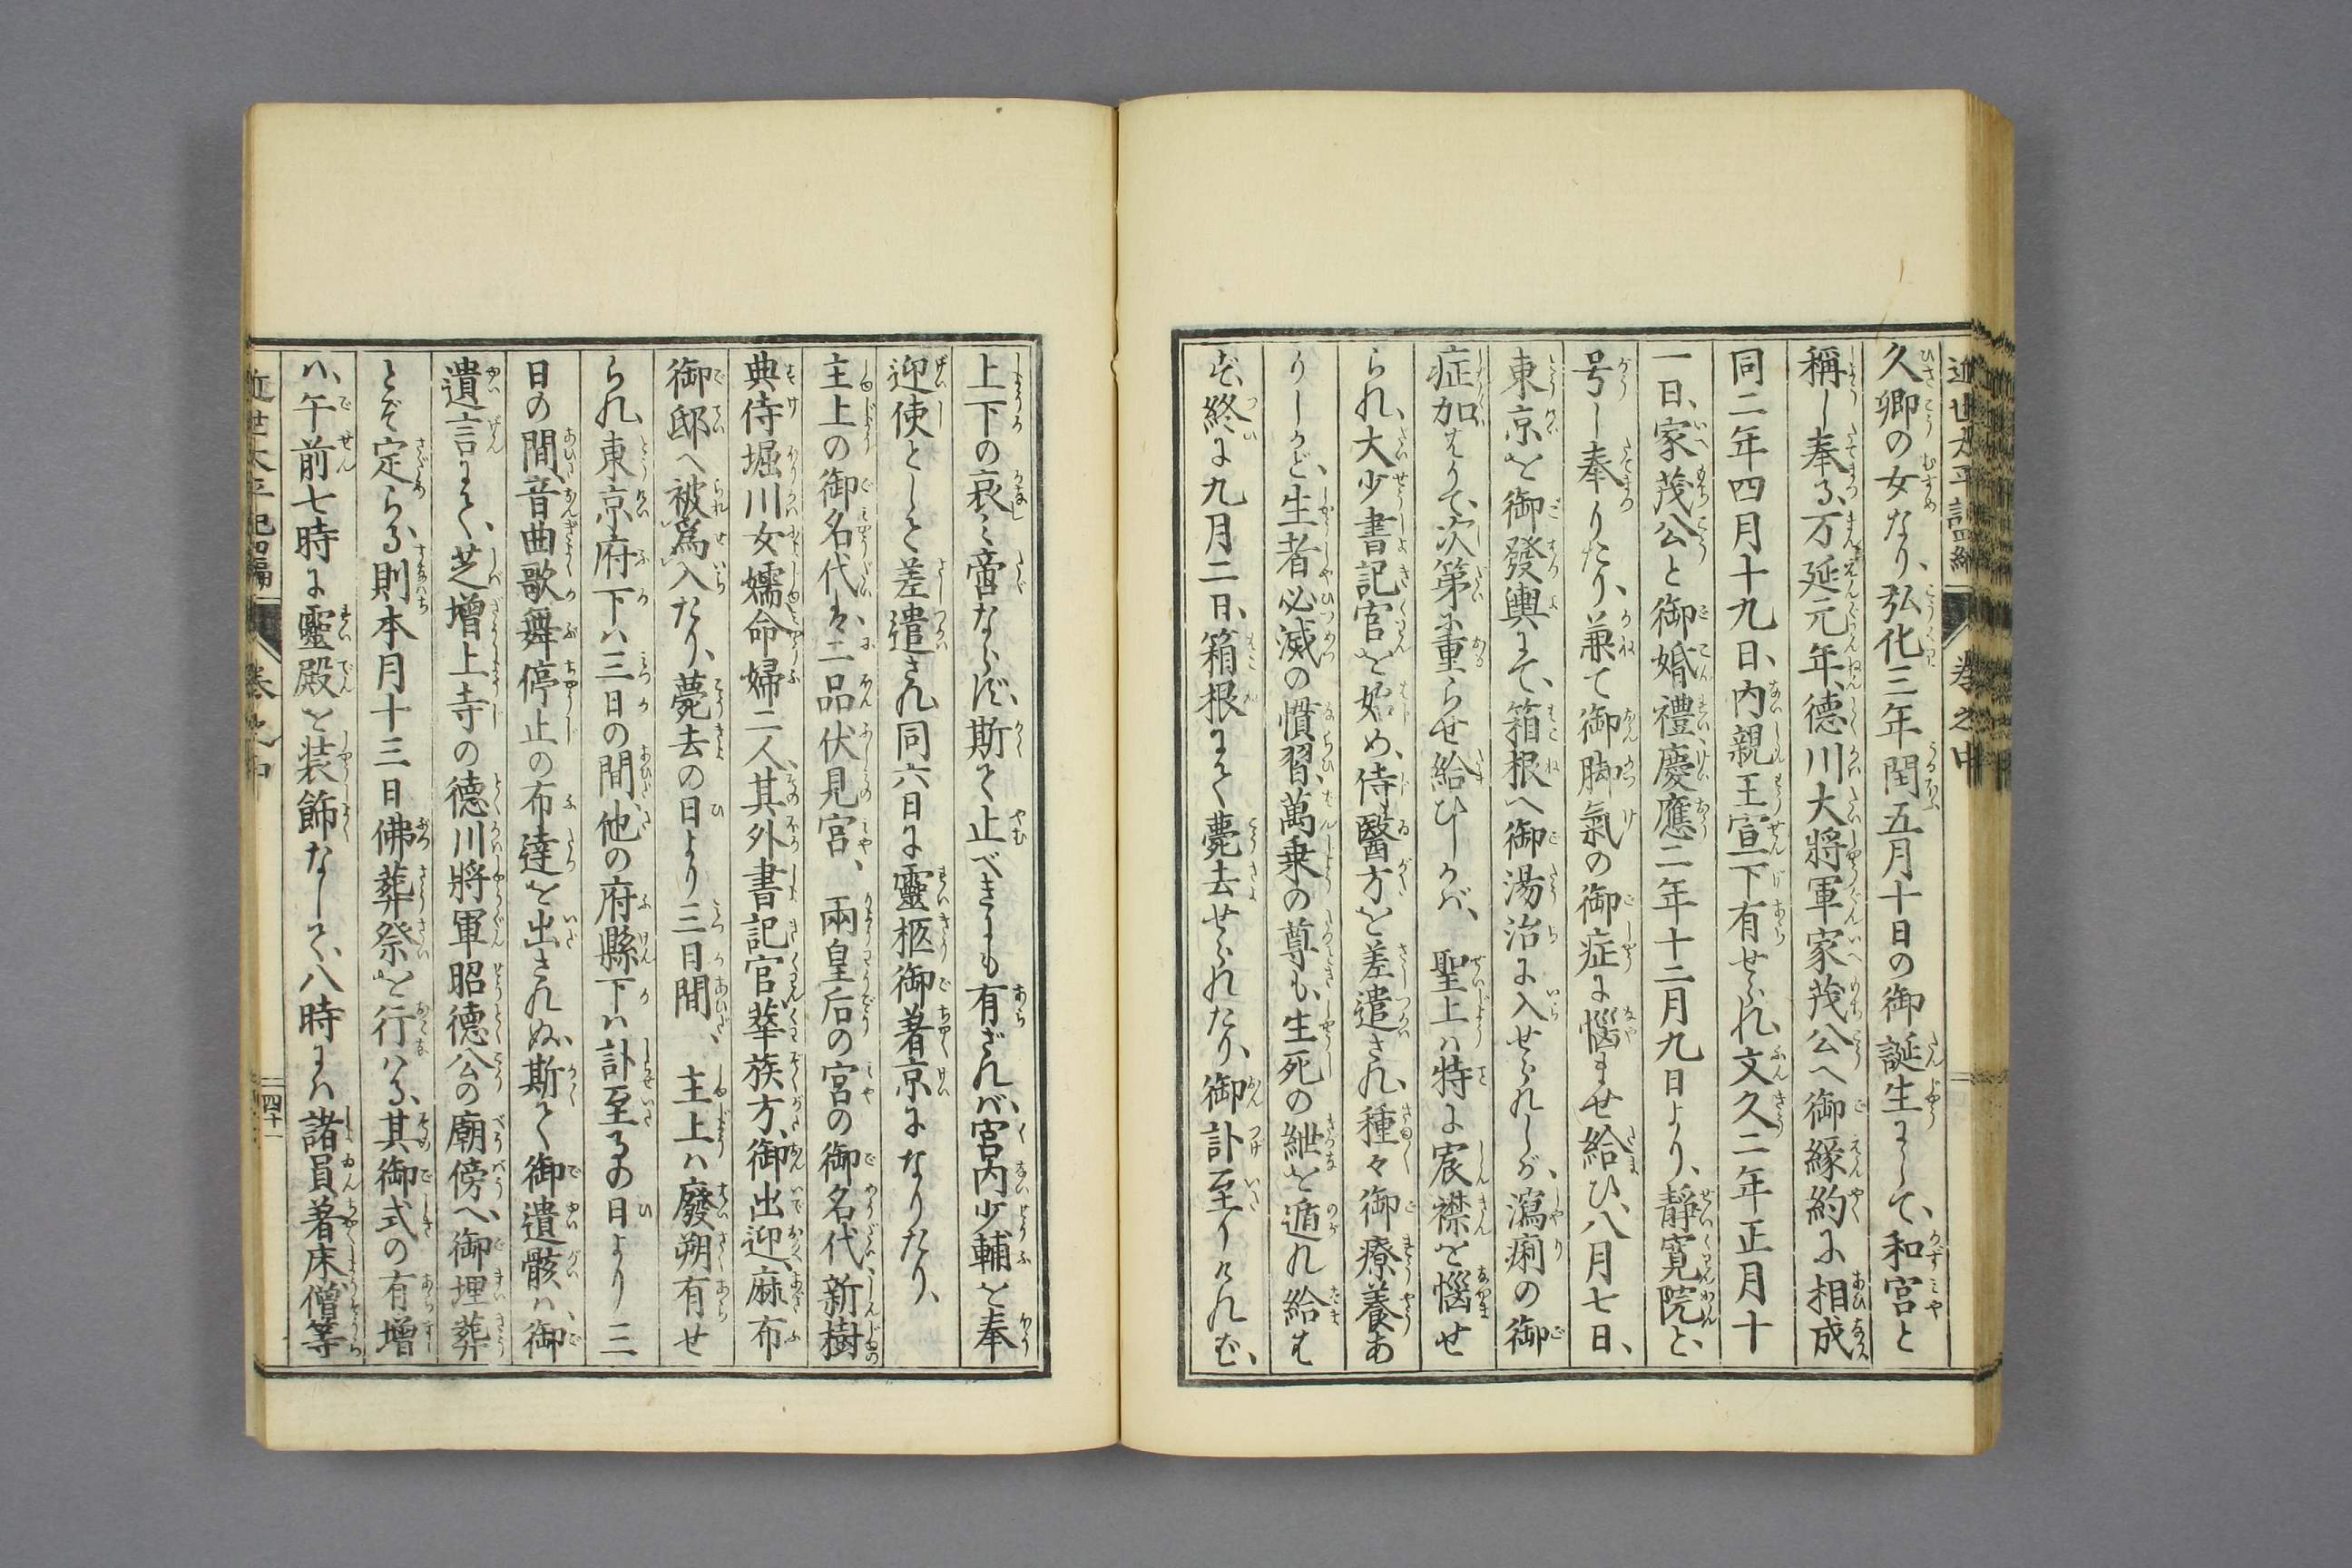 久卿の女なり、弘化三年閏五月十日の御誕生にして、和宮と
稱し奉る、万延元年、德川大將軍家茂公へ御縁約に相成
同二年四月十九日、内親王宣下有せられ、文久二年正月十
一日、家茂公と御婚禮、慶應二年十二月九日より、靜寛院と、
号し奉りたり、兼て御脚氣の御症に惱ませ給ひ、八月七日、
東京を御發輿にて、箱根へ御湯治に入せられしが、瀉痢の御
症加はりて、次第に重らせ給ひしかば、聖上ハ特に宸襟を惱せ
られ、大少書記官を始め、侍醫方を差遣され、種々御療養あ
りしかど、生者必滅の慣習、萬乗の尊も、生死の紲を遁れ給は
ず、終に九月二日、箱根にて薨去せられたり、御訃至りければ、
上下の哀み啻ならず、斯て止べきにも有ざれバ、宮内少輔を奉
迎使として差遣され同六日に靈柩御著京になりたり、
主上の御名代は、二品伏見宮、兩皇后の宮の御名代、新樹
典侍堀川女嬬命婦二人、其外書記官華族方、御出迎、麻布
御邸へ被爲入たり、薨去の日より三日間、主上ハ廢朔有せ
られ、東京府下ハ三日の間、他の府縣下ハ訃至るの日より三
日の間、音曲歌舞停止の布達を出されぬ、斯て御遺骸ハ、御
遺言にて、芝増上寺の德川將軍昭德公の廟傍へ、御埋葬
とぞ定らる、則本月十三日佛葬祭を行ハる、其御式の有増
ハ、午前七時に靈殿を装飾なして、八時にハ諸員着床、僧等
近世太平記四編
卷之中
四十一